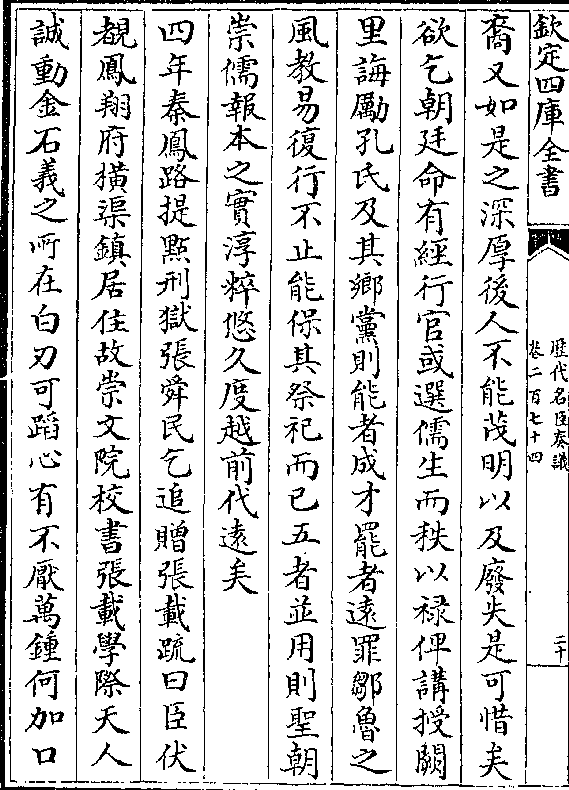 欽定四庫全書
歷代名臣奏議
卷二百七十四
二十
裔又如是之深厚後人不能茂明以及廢失是可惜矣
欲乞朝廷命有經行官或選儒生而秩以禄俾講授闕
里誨勵孔氏及其鄉黨則能者成才罷者遠罪鄒魯之
風教易復行不止能保其祭祀而已五者並用則聖朝
崇儒報本之實淳粹悠久度越前代遠矣
四年秦鳳路提㸃刑獄張舜民乞追贈張載疏曰臣伏
覩鳳翔府横渠鎮居住故崇文院校書張載學際天人
誠動金石義之所在白刃可蹈心有不厭萬鍾何加口